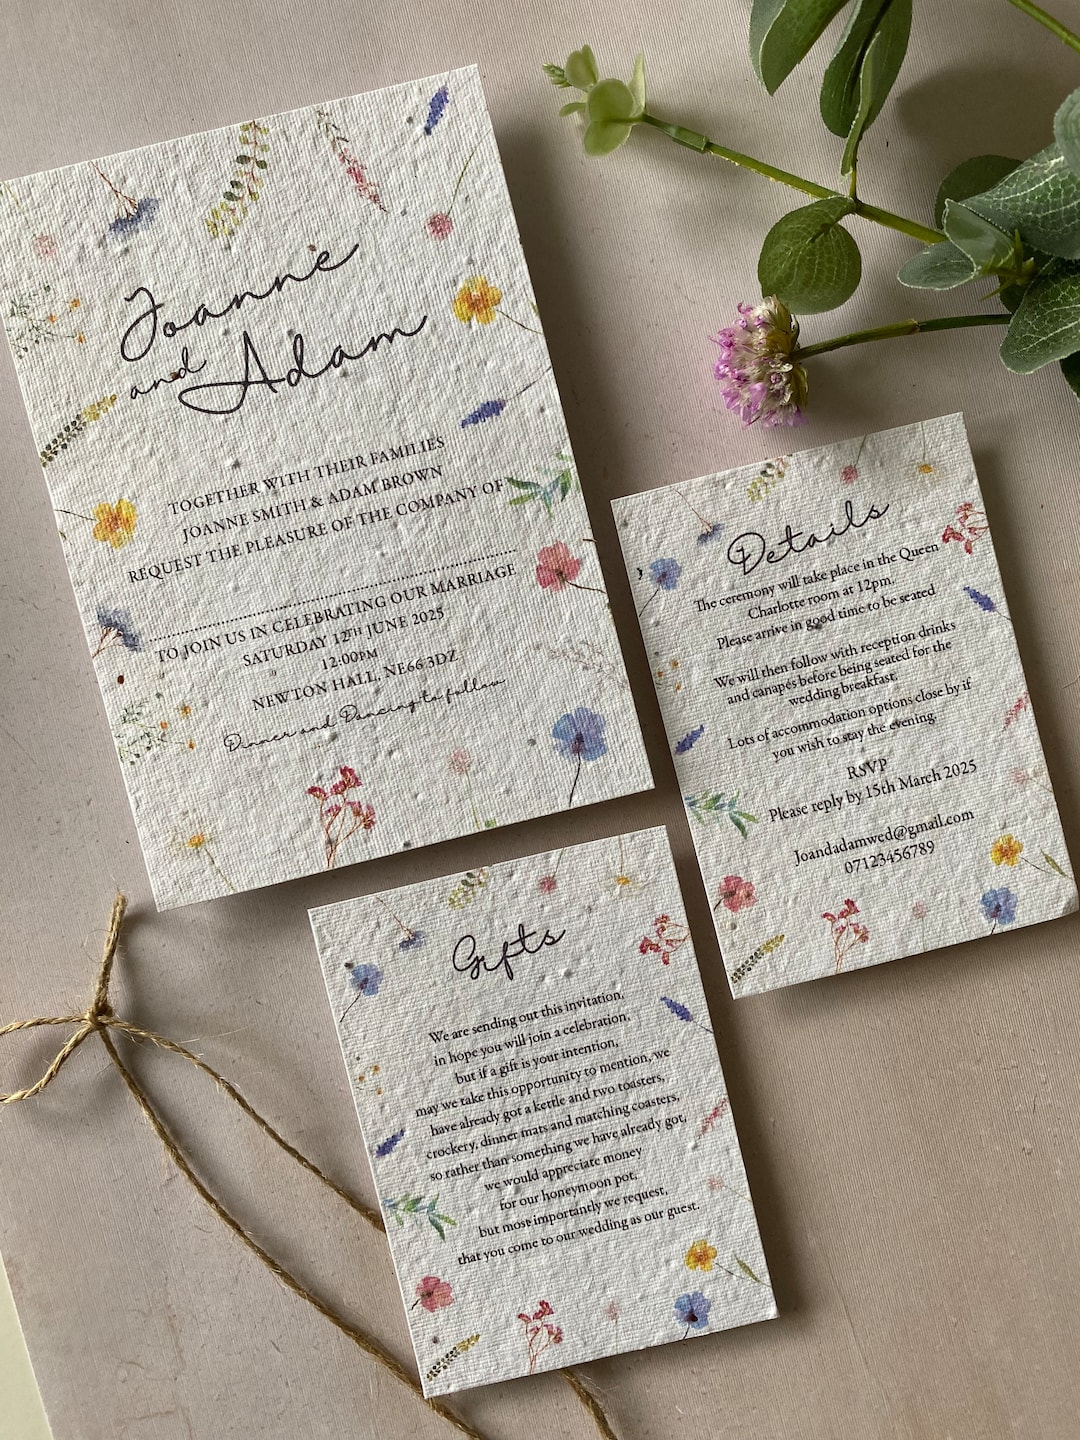 Joanne
and Adam
TOGETHER WITH THEIR FAMILIES
JOANNE SMITH & ADAM BROWN
REQUEST THE PLEASURE OF THE COMPANY OF
TO JOIN US IN CELEBRATING OUR MARRIAGE
SATURDAY 12TH JUNE 2025
12:00PM
NEWTON HALL, NE66 3DZ
Dinner and Dancing to follow
Details
The ceremony will take place in the Queen
Charlotte room at 12pm.
Please arrive in good time to be seated
We will then follow with reception drinks
and canapés before being seated for the
wedding breakfast.
Lots of accommodation options close by if
you wish to stay the evening.
RSVP
Please reply by 15th March 2025
Joandadamwed@gmail.com
07123456789
Gifts
We are sending out this invitation,
in hope you will join a celebration,
but if a gift is your intention,
may we take this opportunity to mention, we
have already got a kettle and two toasters,
crockery, dinner mats and matching coasters,
so rather than something we have already got,
we would appreciate money
for our honeymoon pot,
but most importantly we request,
that you come to our wedding as our guest.